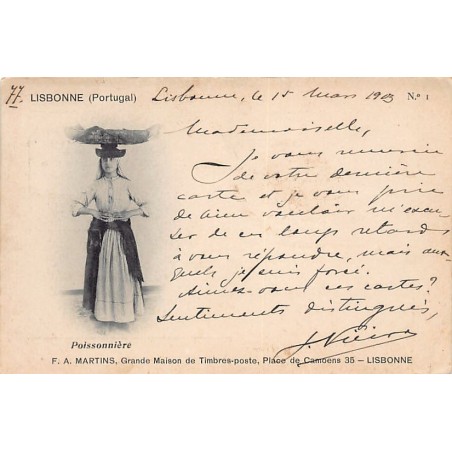 77. LISBONNE (Portugal) Lisbonne, le 15 Mars 1903 N.º 1
Mademoiselle,
Je vous remercie
de votre dernière
carte et je vous prie
de bien vouloir m'excu
ser de ces longs retards
à vous répondre, mais aux-
quels je suis forcé.
Aimez-vous ces cartes?
Sentiments distingués,
J. Vieira
Poissonnière
F. A. MARTINS, Grande Maison de Timbres-poste, Place de Camoëns 35 – LISBONNE